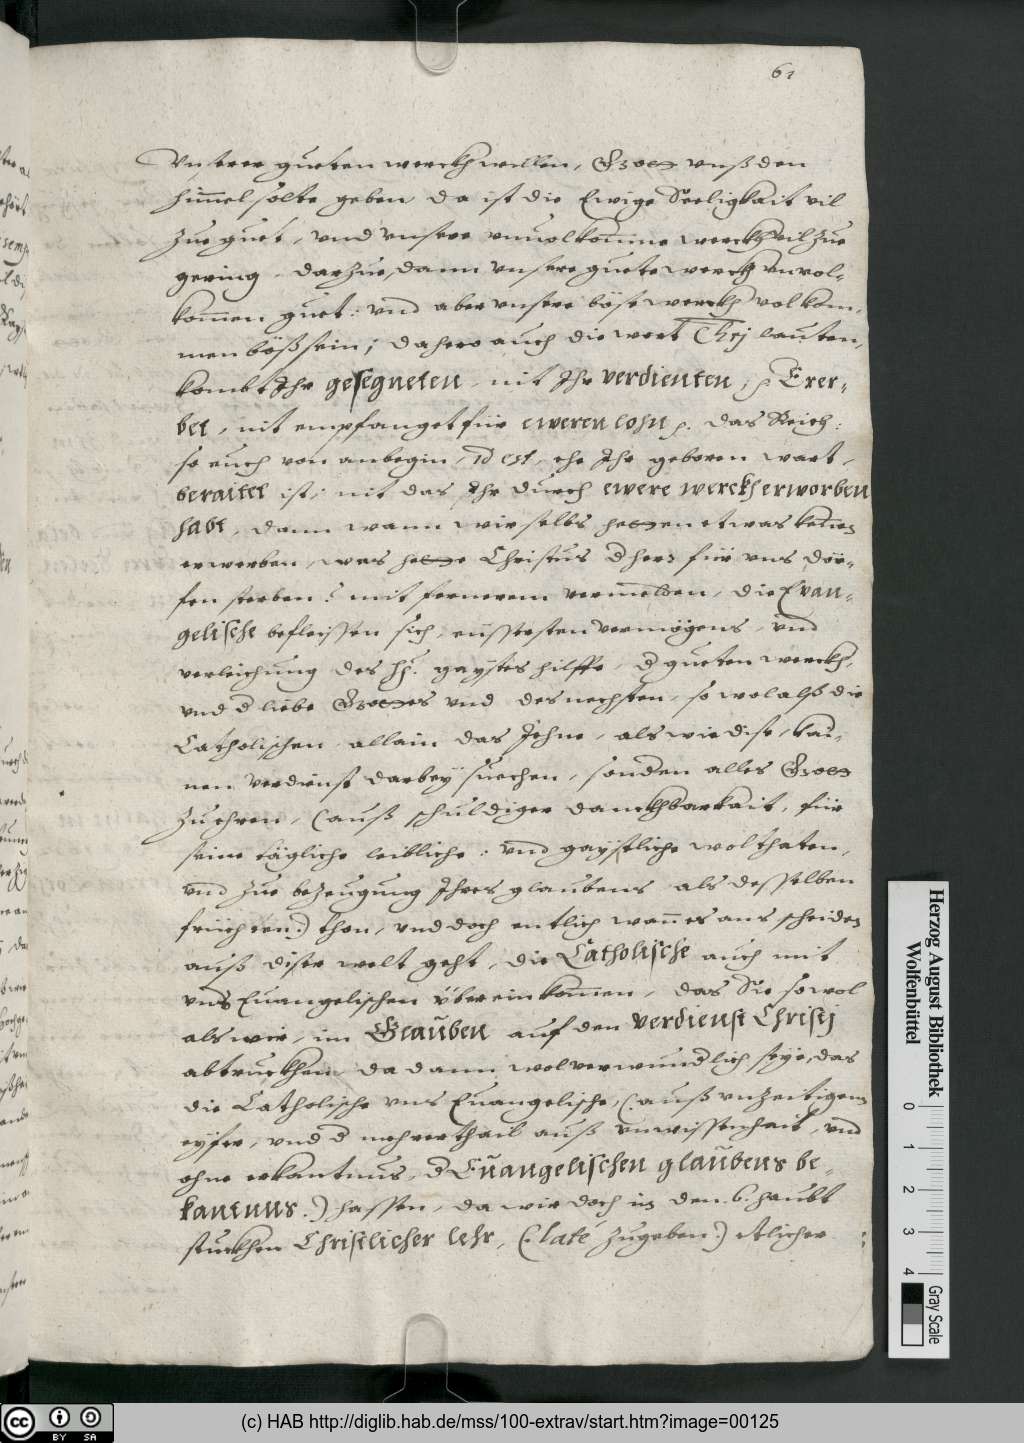 61
Vnserer gueten werckh willen, Gott vnß den
himel solte geben, da ist die Ewige Seeligkait vil
zue guet, vnd vnsere vnuolkomne werckh vil zue
gering. darzue, dann vnsere guete werckh vnvol-
komen guet: vnd aber vnsere böse werckh volkom-
men böß sein; dahero auch die wort Chrj lauten,
kombt Ihr gesegneten, nit Ihr verdienten, Erer-
bet, nit empfanget für eweren lohn. das Reich:
so euch von anbegin, id est, ehe Ihr geboren wart,
beraitet ist; nit das Ihr durch ewere werckh erworben
habt, dann wann wir selbs hetten etwas kenen
erwerben, was hette Christus d herr für vns dör-
fen sterben? mit fernerem vermelden, die Evan-
gelische befleissen sich, eüssersten vermögens, vnd
verleichung des hh. gaystes hilffe, d gueten werckh,
vnd d liebe Gottes vnd des nechsten, so wol alß die
Catholischen, allain das Jehne, als wie dise, kai-
nen verdienst darbey suechen, sonder alles Gott
zu ehren, (auß schuldiger danckhbarkait, für
seine tägliche leibliche: vnd gaystliche wolthaten,
vnd zue bezeugung Ihres glaubens als desselben
früchten:) thon, vnd doch entlich wann es ans scheiden
auß diser welt geht, die Catholische auch mit
vns Euangelischen überein komen, das Sie sowol
als wir, im Glauben auf den verdienst Christj
abtruckhen da dann wol verwunderlich seye, das
die Catholische vns Euangelische, (: auß vnzeitigem
eyfer, vnd d mehrer thail auß vnwissenhait, vnd
ohne erkantnus, d Euangelischen glaubens be-
kantnus.) hassen, da wir doch in den .6. haubt
stuckhen Christlicher lehr, (: laté zugeben:) etlicher
Herzog August Bibliothek
Wolfenbüttel
0 1 2 3 4
Gray Scale
cc BY SA
(c) HAB http://diglib.hab.de/mss/100-extrav/start.htm?image=00125